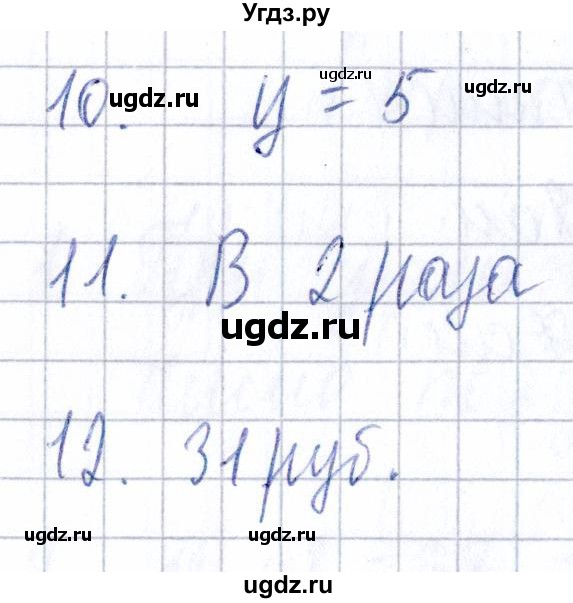 Угдз.ру
10. у = 5
ugdz.ru ugdz.ru ugdz.ru
11. В 2 раза
ugdz.ru
12. 31 руб.
ugdz.ru ugdz.ru
ugdz.ru